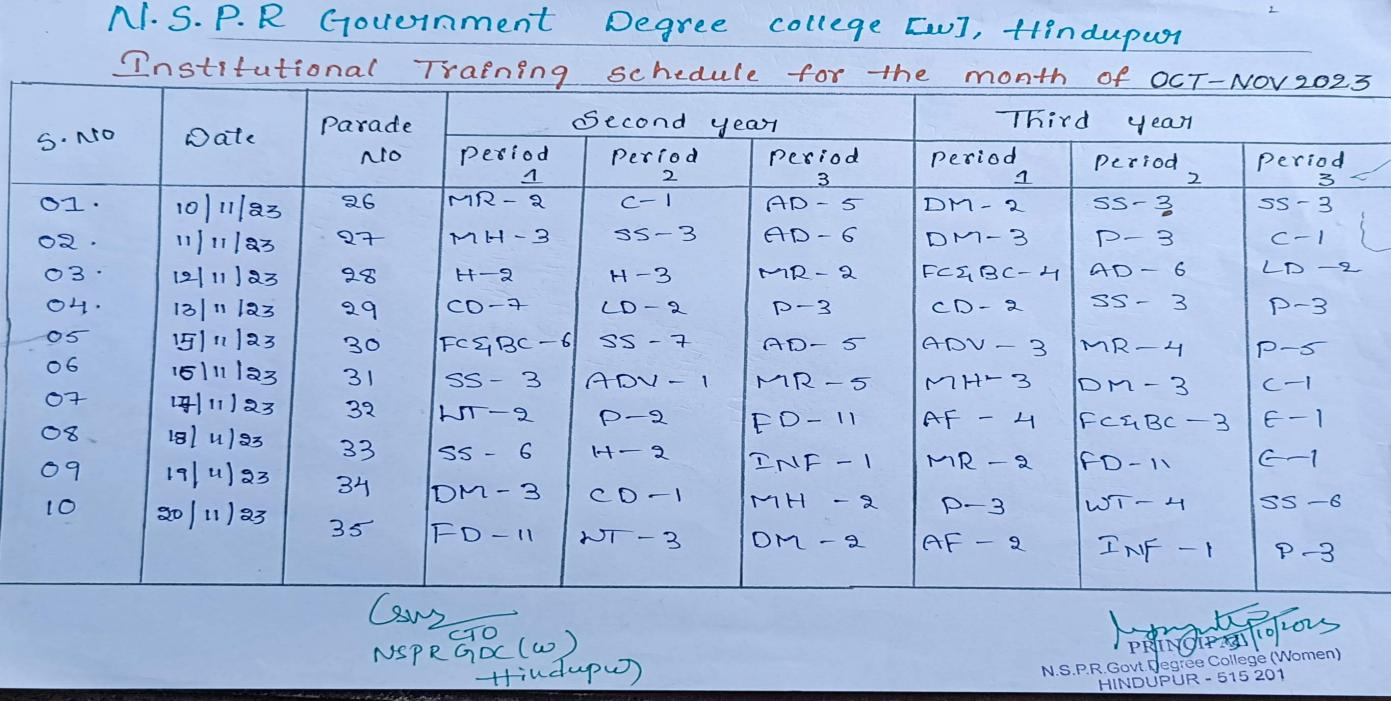 N.S.P.R Government Degree college [w], Hindupur
Institutional Training schedule for the month of OCT-NOV 2023
S.No Date Parade No Second year Third year
Period 1 Period 2 Period 3 Period 1 Period 2 Period 3
01. 10/11/23 26 MR-2 C-1 AD-5 DM-2 SS-3 SS-3
02. 11/11/23 27 MH-3 SS-3 AD-6 DM-3 P-3 C-1
03. 12/11/23 28 H-2 H-3 MR-2 FC&BC-4 AD-6 LD-2
04. 13/11/23 29 CD-7 LD-2 P-3 CD-2 SS-3 P-3
05 15/11/23 30 FC&BC-6 SS-7 AD-5 ADV-3 MR-4 P-5
06 16/11/23 31 SS-3 ADV-1 MR-5 MH-3 DM-3 C-1
07 17/11/23 32 WT-2 P-2 FD-11 AF-4 FC&BC-3 E-1
08 18/11/23 33 SS-6 H-2 INF-1 MR-2 FD-11 E-1
09 19/11/23 34 DM-3 CD-1 MH-2 P-3 WT-4 SS-6
10 20/11/23 35 FD-11 WT-3 DM-2 AF-2 INF-1 P-3
CTO
NSPR GDC (w)
Hindupur
PRINCIPAL
N.S.P.R.Govt.Degree College (Women)
HINDUPUR - 515 201